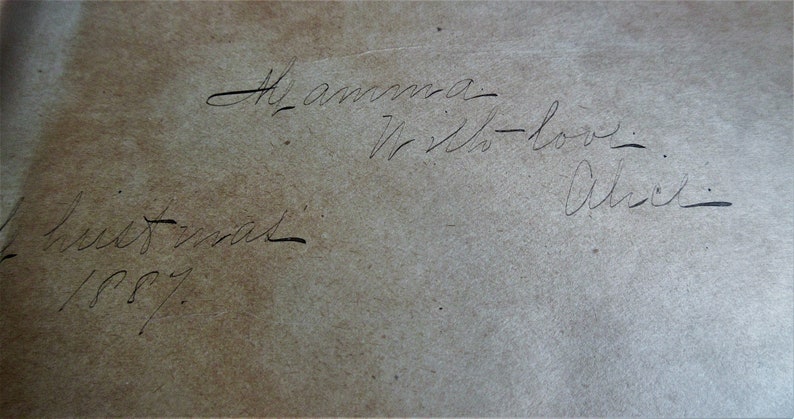 Mamma
With love.
Alice.
Christmas
1887.